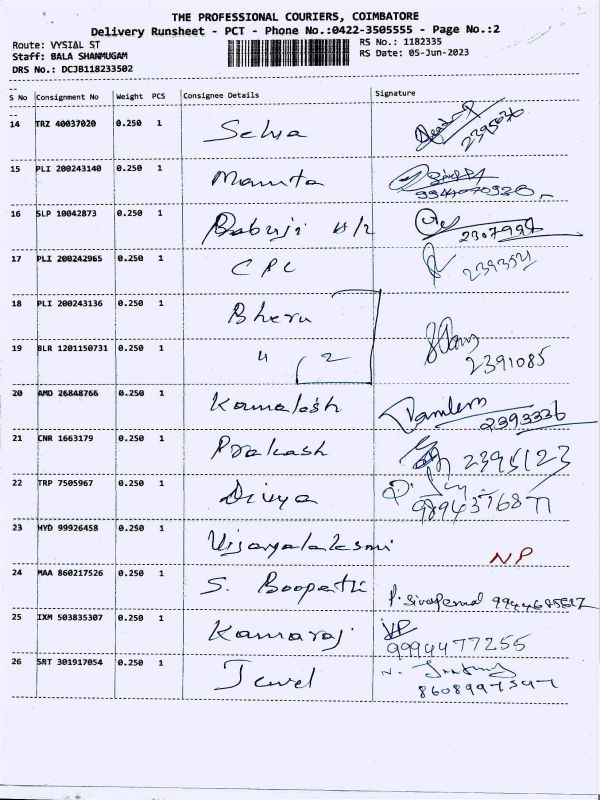 THE PROFESSIONAL COURIERS, COIMBATORE
Delivery Runsheet - PCT - Phone No.:0422-3505555 - Page No.:2
Route: VYSIAL ST
RS No.: 1182335
Staff: BALA SHANMUGAM
RS Date: 05-Jun-2023
DRS No.: DCJB118233502
--
S No Consignment No Weight PCS Consignee Details Signature
--
14 TRZ 40037020 0.250 1 Selva
15 PLI 200243140 0.250 1 Mamta
16 SLP 10042873 0.250 1 Babuji H/2
17 PLI 200242965 0.250 1 CPC
18 PLI 200243136 0.250 1 Bheru
19 BLR 1201150731 0.250 1 " 2
2391085
20 AMD 26848766 0.250 1 Kamalesh
2393336
21 CNR 1663179 0.250 1 Prakash 2395123
22 TRP 7505967 0.250 1 Divya
23 HYD 99926458 0.250 1 Vijayalakshmi NP
24 MAA 860217526 0.250 1 S. Boopathi
25 IXM 503835307 0.250 1 Kamaraj
9994477255
26 SRT 301917054 0.250 1 Jewel